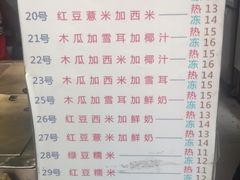 冻 13
20号 红豆薏米加西米 热 13
冻 14
21号 木瓜加雪耳加椰汁 热 15
冻 16
22号 木瓜加西米加椰汁 热 15
冻 16
23号 木瓜加雪耳加鲜奶 热 15
冻 16
25号 木瓜加西米加鲜奶 热 15
冻 16
26号 红豆西米加鲜奶 热 13
冻 14
27号 红豆薏米加鲜奶 热 13
冻 14
28号 绿豆糯米 热 11
冻 12
29号 红豆糯米 热 11
冻 12